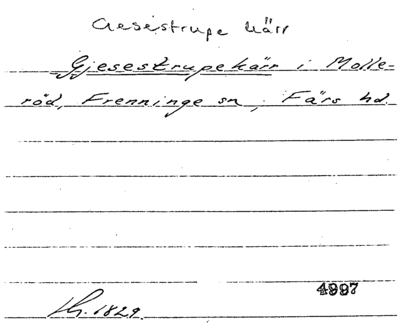 Gesestrupe kärr
Gjesestrupekärr i Molle-
röd, Frenninge sn, Färs hd.
4997
Lh. 1829.